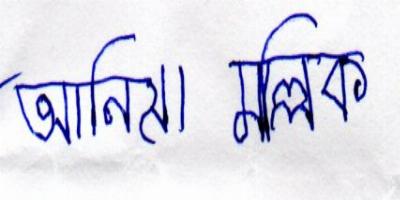 আনিষা মল্লিক